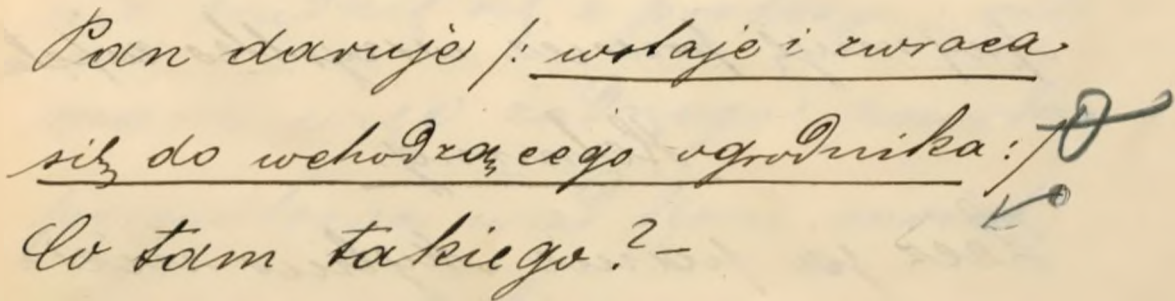 Pan daruje /: wstaje i zwraca
się do wchodzącego ogrodnika :/
Co tam takiego? –